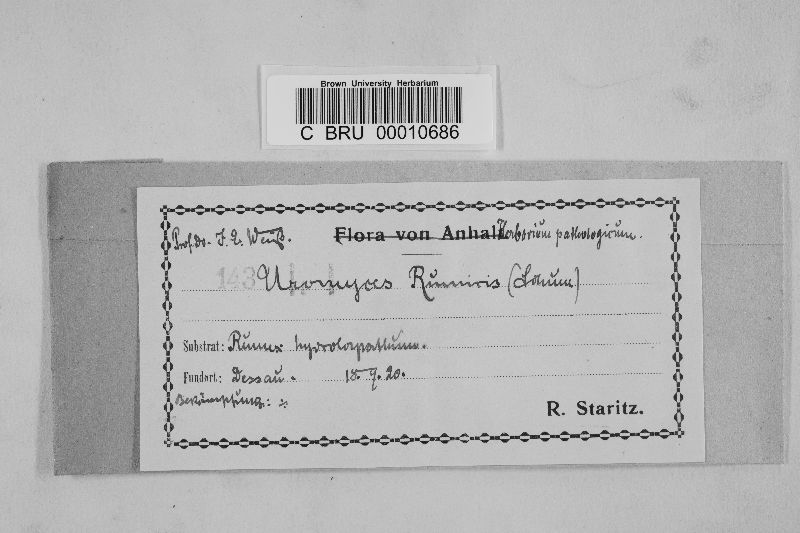 Brown University Herbarium
C BRU 00010686
Prof. Dr. J. E. Weiß. Flora von Anhalt Herbarium pathologicum.
143 Uromyces Rumicis (Schum)
Substrat: Rumex hydrolapathum.
Fundort: Dessau. 18.9.20.
Bekämpfung:
R. Staritz.